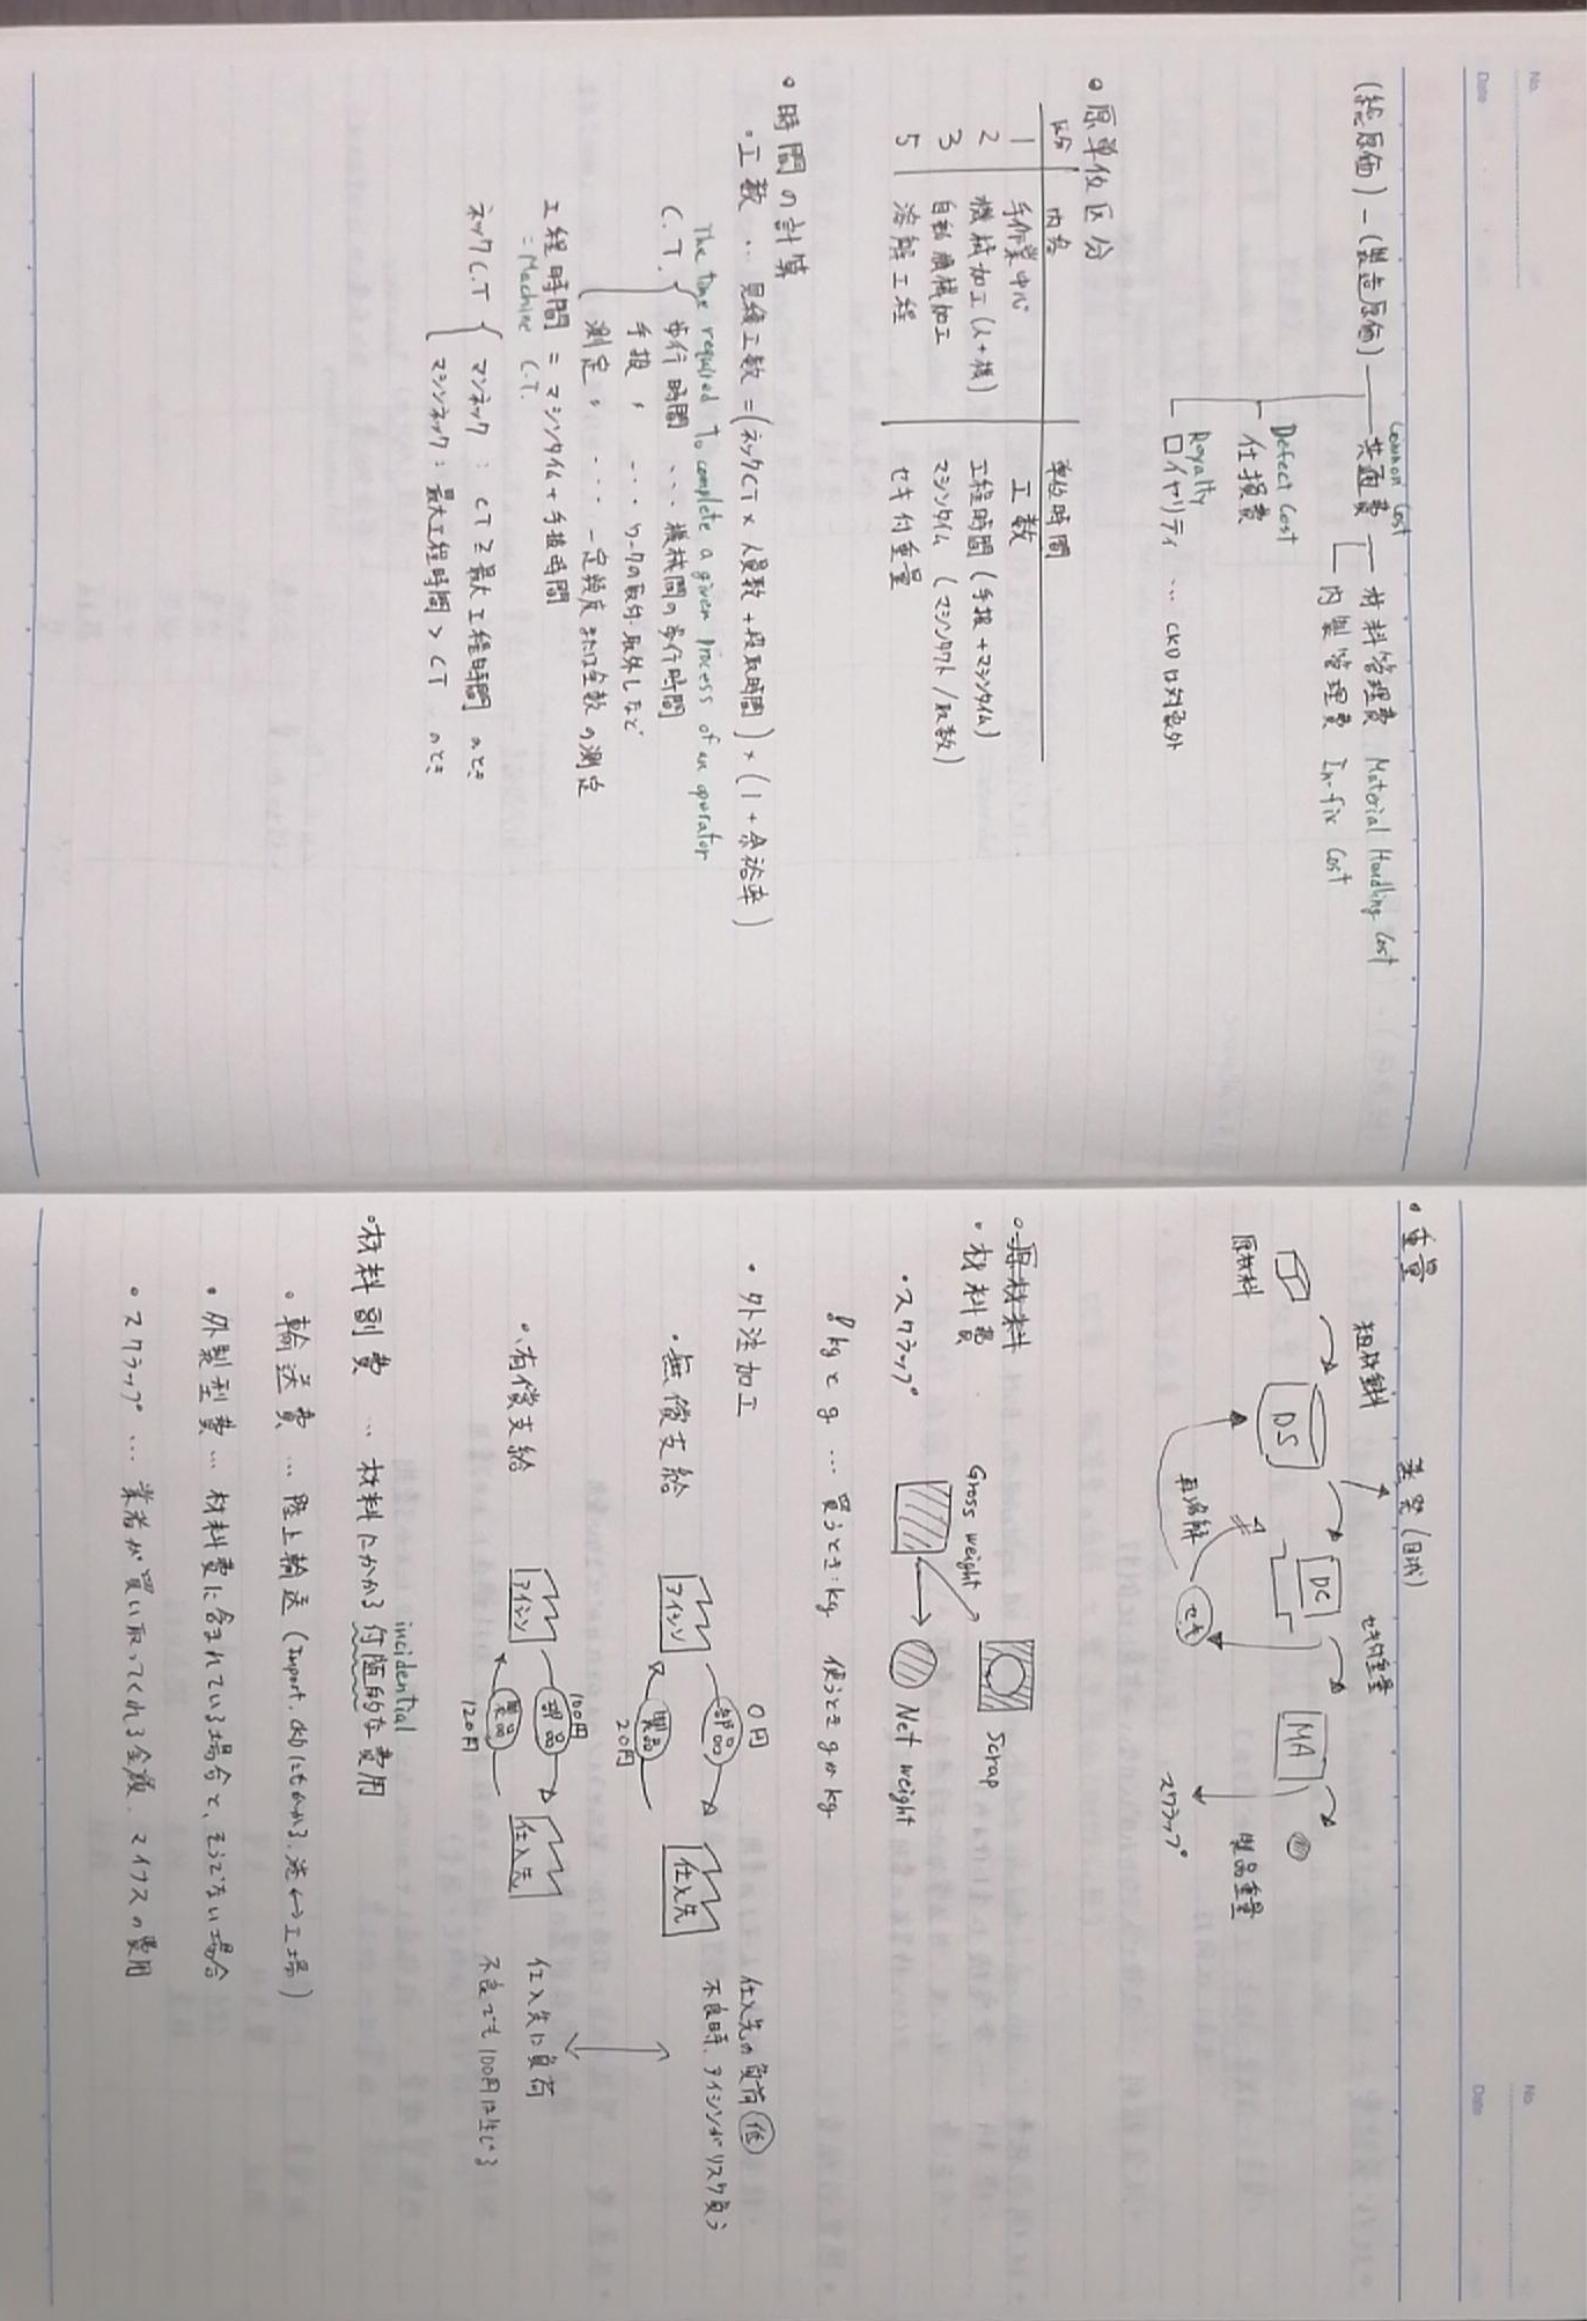 No.
Date
(総原価) - (製造原価)
Common Cost
共通費
材料管理費 Material Handling Cost
内製管理費 In-fix Cost
Defect Cost
仕損費
Royalty
ロイヤリティ … CKDは対象外
・原単位区分
区分 内容 単位時間
1 手作業中心 工数
2 機械加工(人+機) 工程時間(手扱+マシンタイム)
3 自動機械加工 マシンタイム(マシンタクト/取数)
5 溶解工程 セキ付重量
・時間の計算
・工数 … 見積工数 = (ネックCT × 人員数 + 段取時間) × (1 + 余裕率)
The time required to complete a given process of an oparator
C.T. 歩行時間 … 機械間の歩行時間
手扱 〃 … ワークの取付・取外しなど
測定 〃 … 一定頻度または全数の測定
工程時間 = マシンタイム + 手扱時間
= Machine C.T.
ネックC.T
マンネック : CT ≧ 最大工程時間 のとき
マシンネック : 最大工程時間 > CT のとき
No.
Date
・重量
粗材重料
蒸発(目減)
セキ付重量
原材料
DS
DC
MA
再溶解
セキ
製品重量
スクラップ
原材料
・材料費
Gross weight
Scrap
・スクラップ
Net weight
kgとg … 買うとき:kg 使うとき g or kg
・外注加工
・無償支給
アイシン
0円
部品
製品
20円
仕入先
仕入先の負荷(低)
不良時、アイシンがリスク負う
・有償支給
アイシン
100円
部品
製品
120円
仕入先
仕入先に負荷
不良でも100円は生じる
・材料副費 … 材料にかかる付随的な費用
incidential
・輸送費 … 陸上輸送 (Import, CKDにもかかる. 港↔工場)
・外製型費 … 材料費に含まれている場合と、そうでない場合
・スクラップ … 業者が買い取ってくれる金額. マイナスの費用